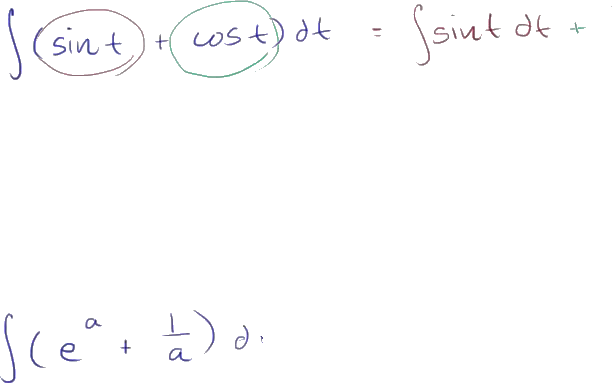 ∫(sin t + cos t) dt = ∫sin t dt +
∫(e^a + 1/a) d